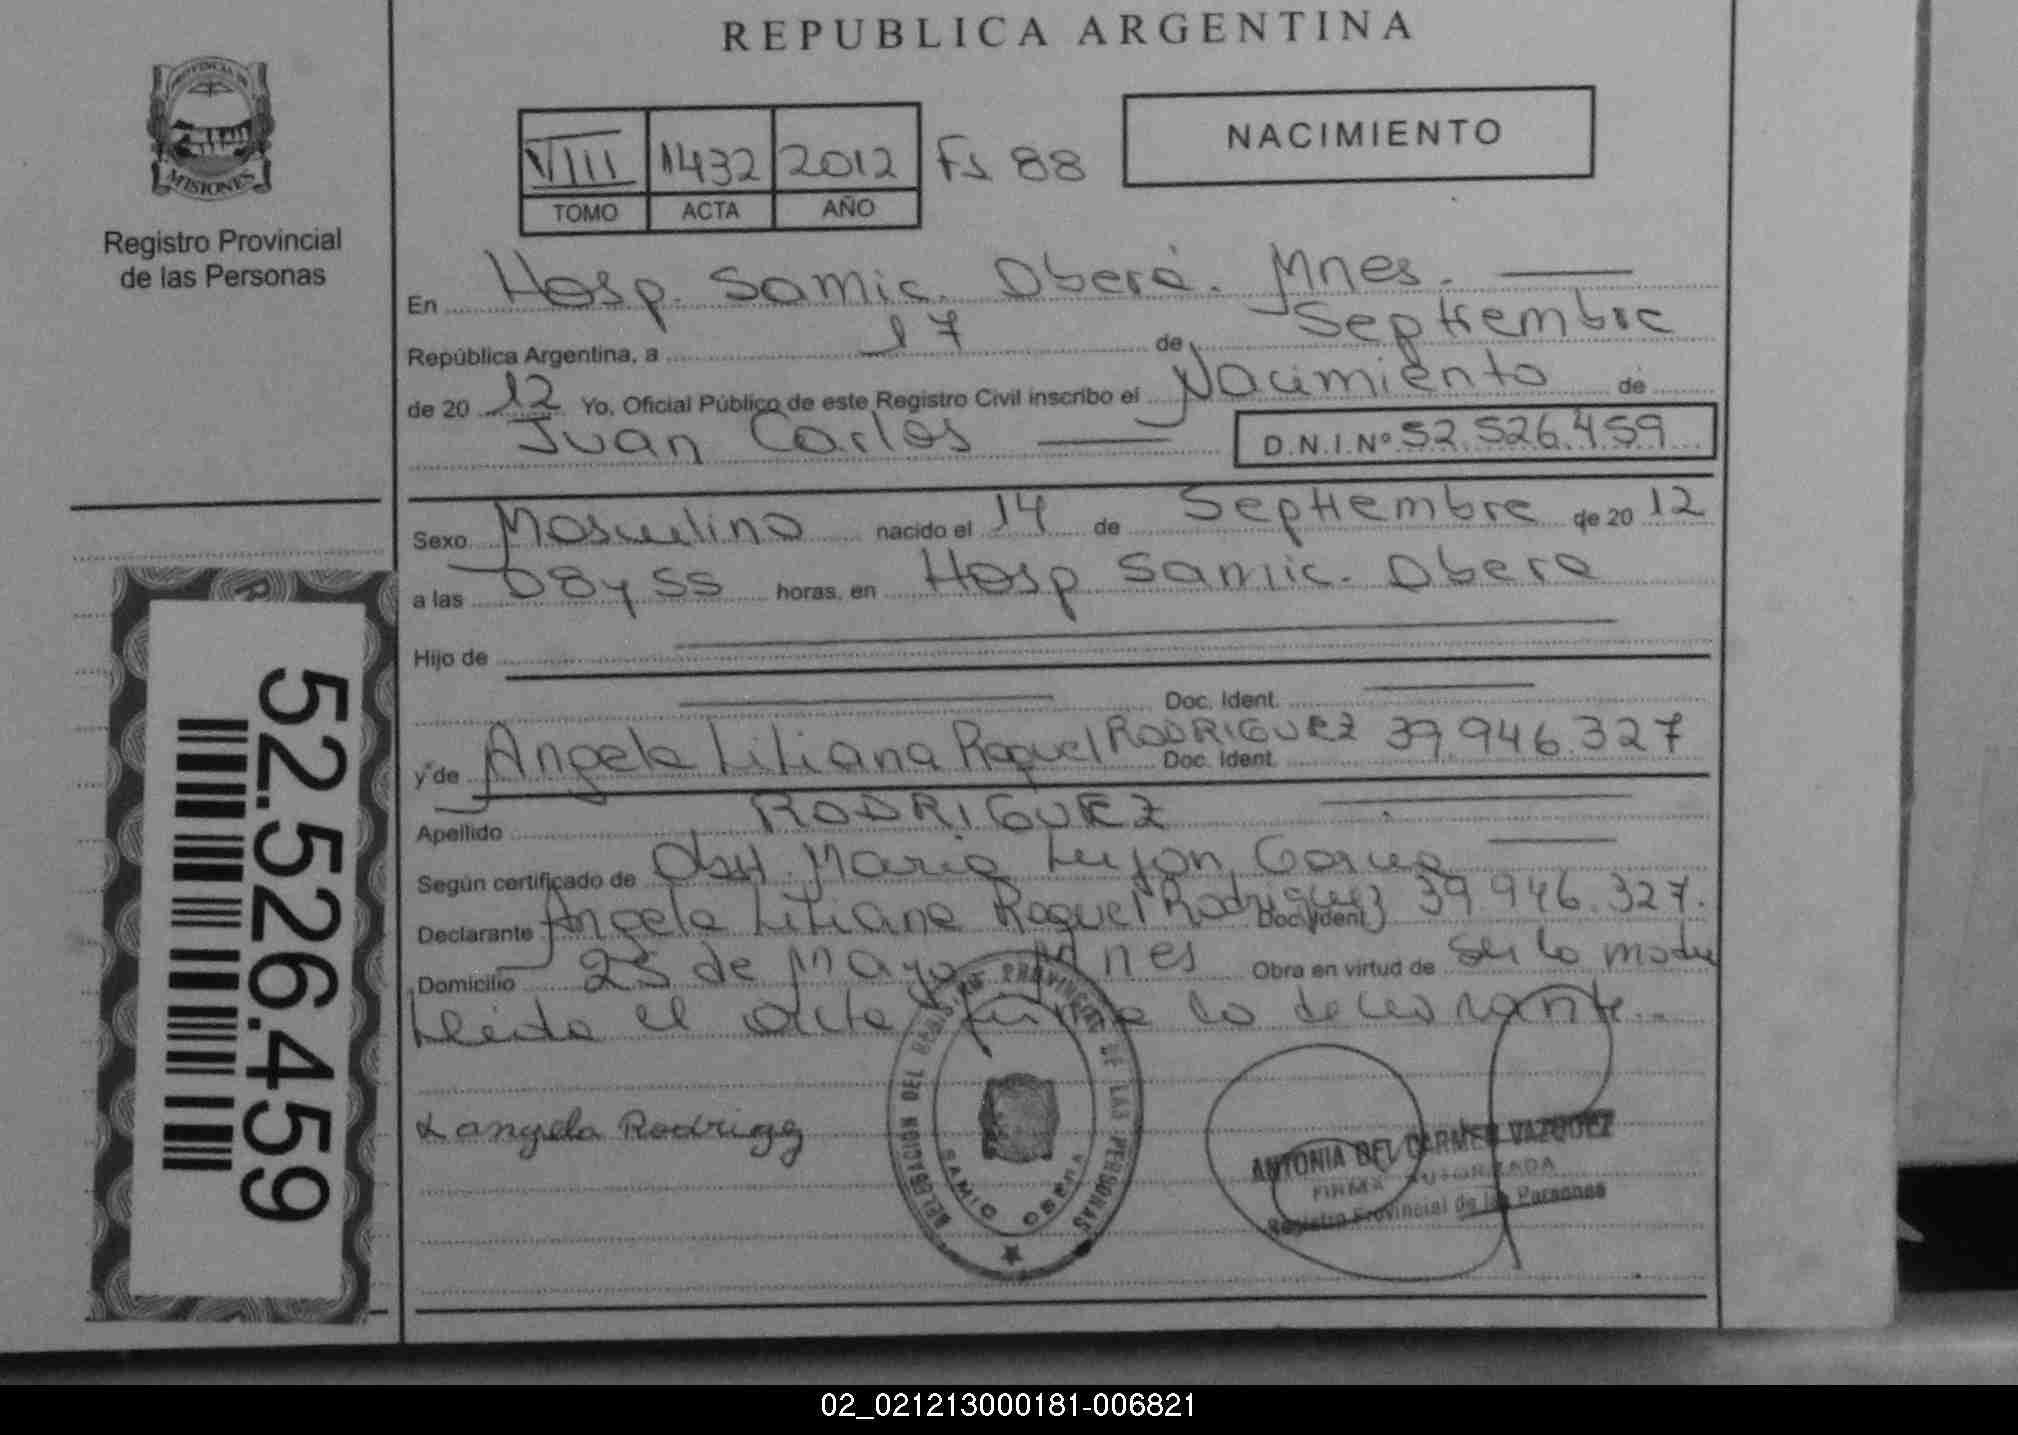 REPUBLICA ARGENTINA
PROVINCIA DE
MISIONES
Registro Provincial
de las Personas
VIII 1432 2012 Fs 88
TOMO ACTA AÑO
NACIMIENTO
En Hosp. Samic. Oberá. Mnes.
República Argentina, a 17 de Septiembre
de 20 12 Yo, Oficial Público de este Registro Civil inscribo el Nacimiento de
Juan Carlos D.N.I.Nº 52.526.459
Sexo Masculino nacido el 14 de Septiembre de 20 12
a las 08 y 55 horas, en Hosp Samic. Obera
Hijo de
Doc. Ident.
y de Angela Liliana Raquel RODRIGUEZ Doc. Ident. 39.946.327
Apellido RODRIGUEZ
Según certificado de Obst. Maria Lujan Garcia
Declarante Angela Liliana Raquel Rodriguez Doc. Ident. 39.946.327.
Domicilio 25 de Mayo Mnes Obra en virtud de ser la madre
Leida el acta firma la declarante.
angela Rodrigez
DELEGACION DEL REGISTRO PROVINCIAL DE LAS PERSONAS
SAMIC OBERA
ANTONIA DEL CARMEN VAZQUEZ
FIRMA AUTORIZADA
Registro Provincial de las Personas
52.526.459
02_021213000181-006821